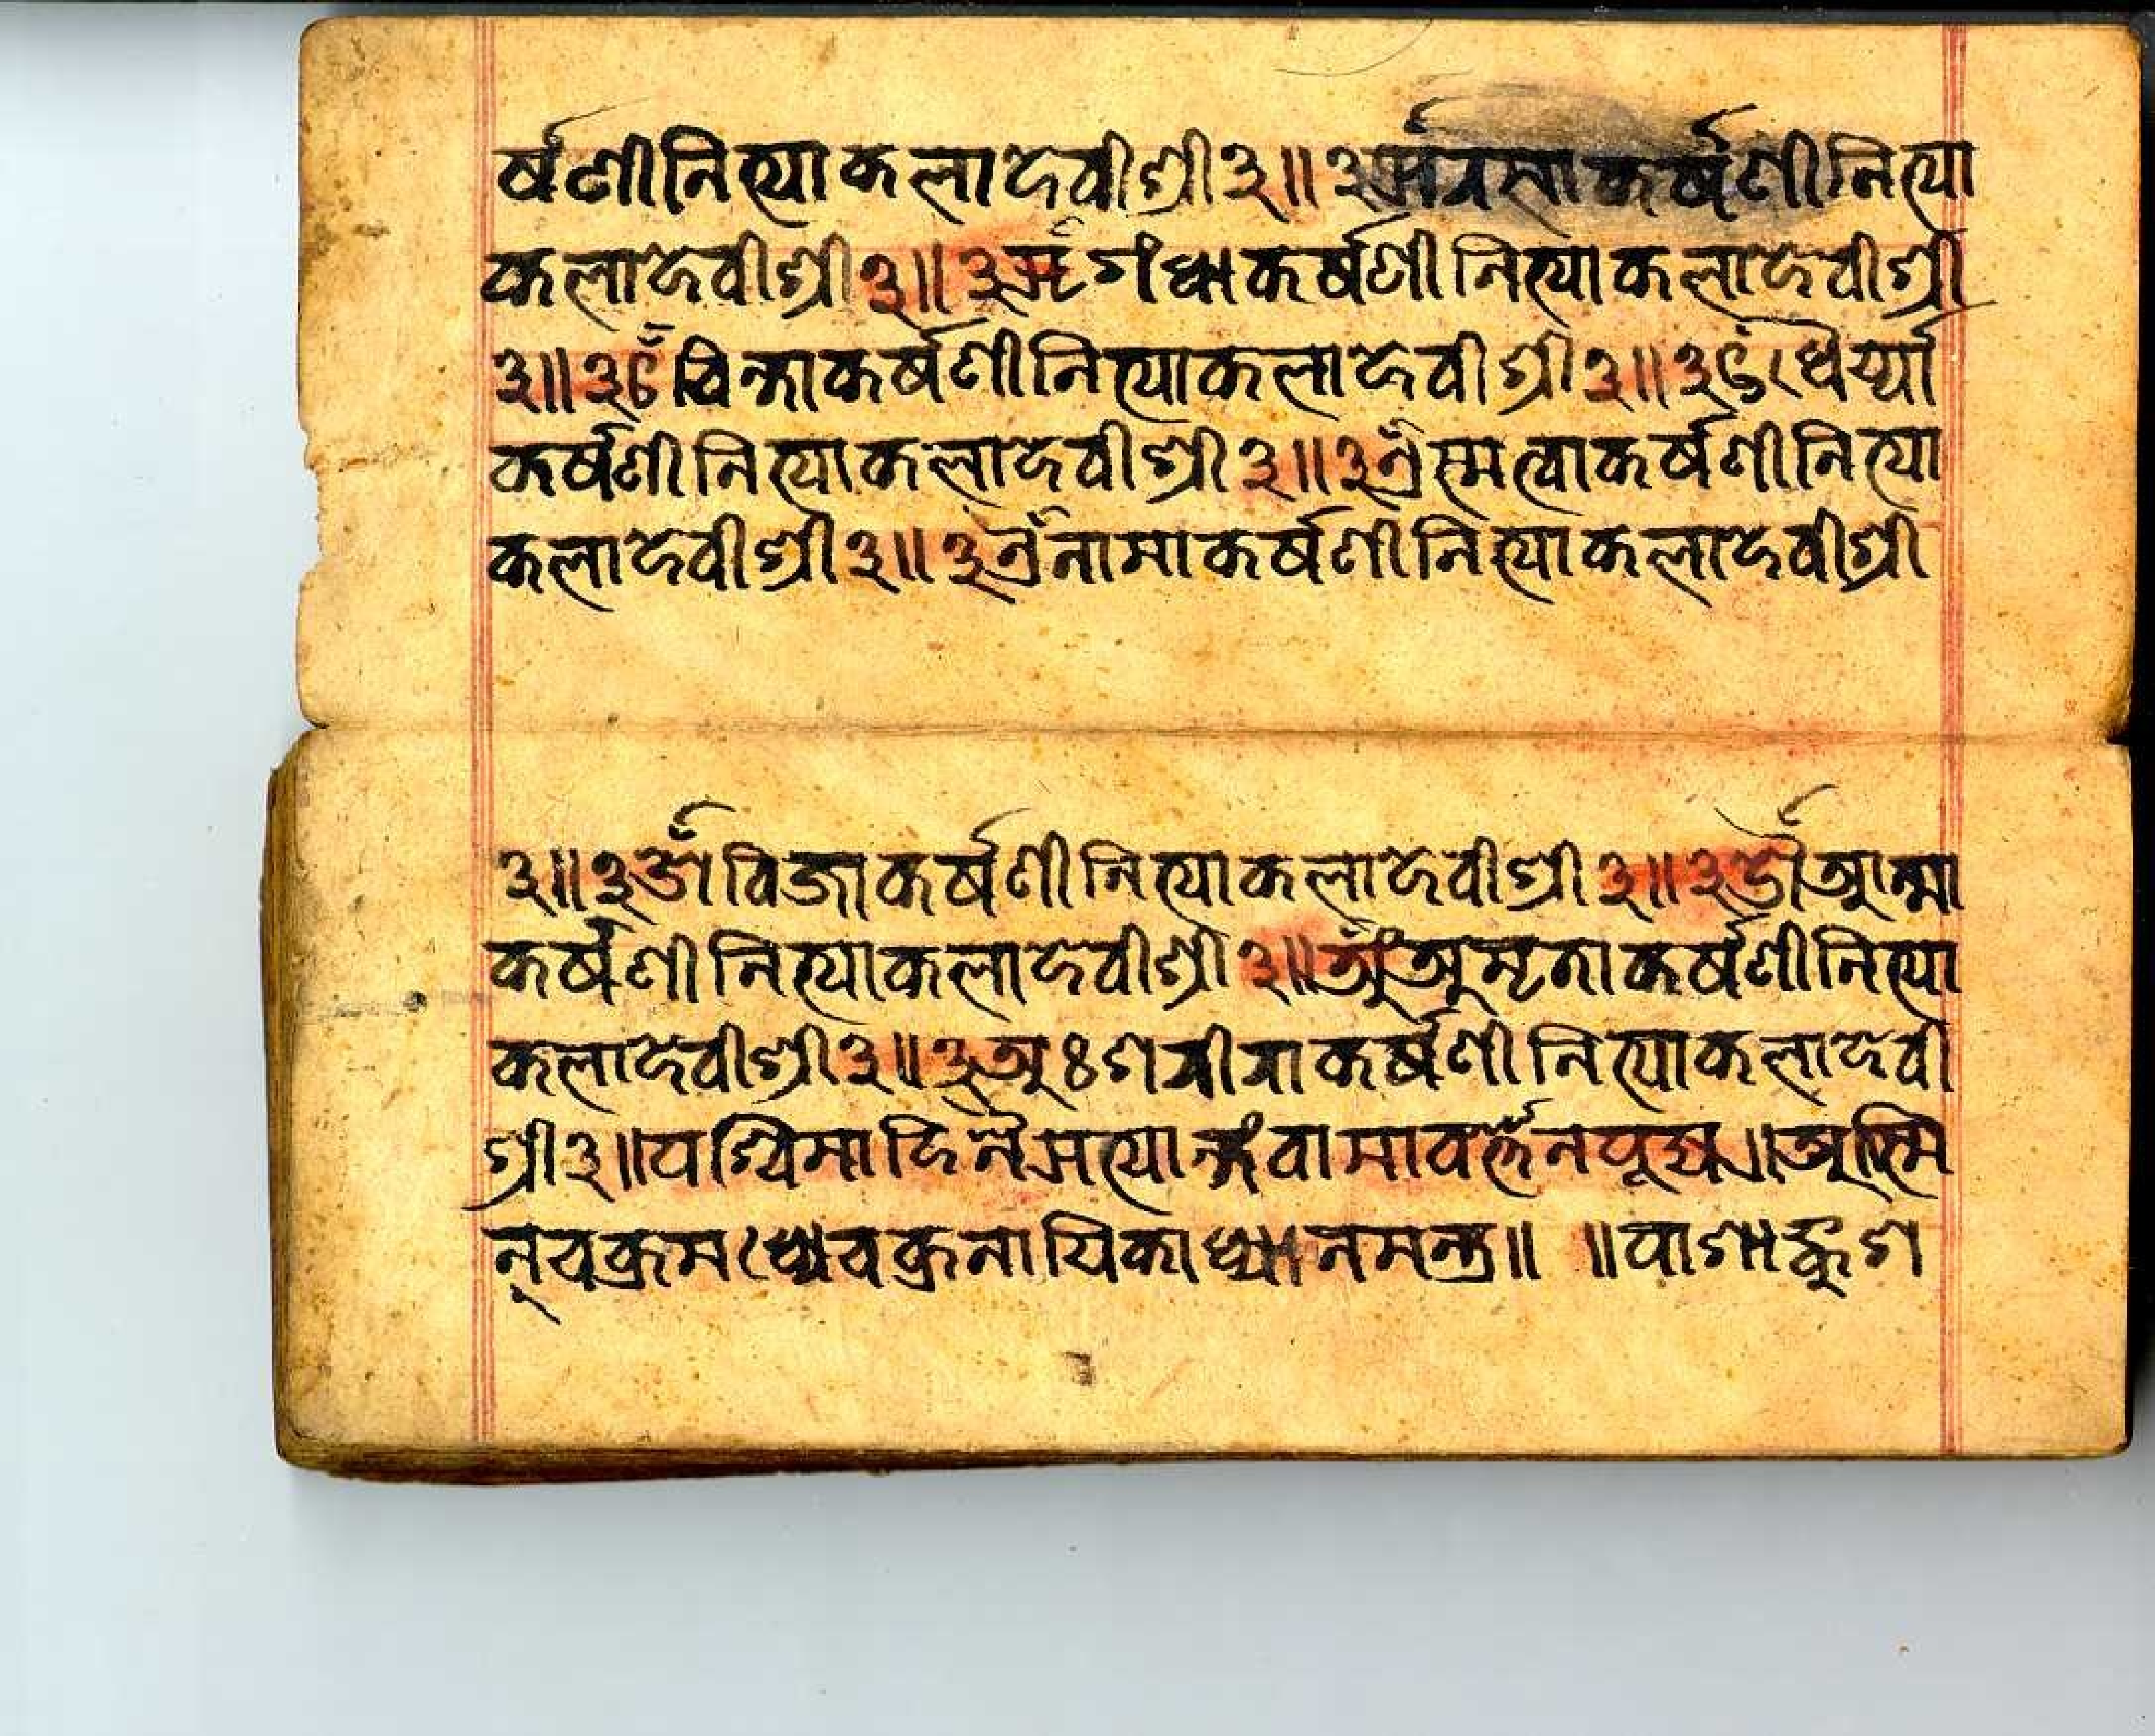 र्षणीनित्याकलादेवीश्री३॥३ॠँरसाकर्षणीनित्या
कलादेवीश्री३॥३ऌँगंधाकर्षणीनित्याकलादेवीश्री
३॥३ॡँचित्ताकर्षणीनित्याकलादेवीश्री३॥३एँधैर्य्या
कर्षणीनित्याकलादेवीश्री३॥३ऐँस्मत्वाकर्षणीनित्या
कलादेवीश्री३॥३ऐँनामाकर्षणीनित्याकलादेवीश्री
३॥३ओँविजाकर्षणीनित्याकलादेवीश्री३॥३औँआत्मा
कर्षणीनित्याकलादेवीश्री३॥अँअमृताकर्षणीनित्या
कलादेवीश्री३॥३अःशरीराकर्षणीनित्याकलादेवी
श्री३॥पश्चिमादिनैसत्यान्तंवामावर्त्तेनपूज्य॥अस्मि
न्चक्रमध्येचक्रनायिकाध्यानमन्त्र॥ ॥पाशाङ्कुश